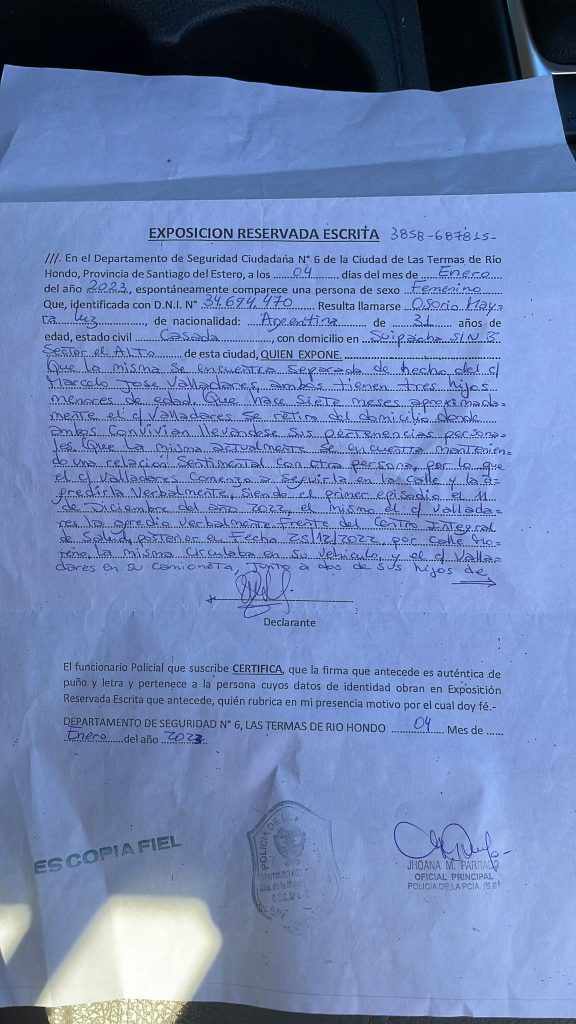 EXPOSICION RESERVADA ESCRITA 3858-687815-
///. En el Departamento de Seguridad Ciudadana N° 6 de la Ciudad de Las Termas de Río
Hondo, Provincia de Santiago del Estero, a los 04 días del mes de Enero
del año 2023, espontáneamente comparece una persona de sexo Femenino
Que, identificada con D.N.I. N° 34.694.470 Resulta llamarse Osorio May-
ra Luz, de nacionalidad: Argentina de 31 años de
edad, estado civil Casada, con domicilio en Suipacha S/N B
Sector el Alto de esta ciudad, QUIEN EXPONE.
Que la misma se encuentra Separada de hecho del c/
Marcelo Jose Valladares, ambos tienen tres hijos
menores de edad. Que hace Siete meses aproximada=
mente el c/ Valladares se retira del domicilio donde
ambos Convivian llevandose sus pertenencias persona=
les. Que la misma actualmente se encuentra mantenien=
do una relacion Sentimental con otra persona, por lo que
el c/ Valladares Comenzo a Seguirla en la calle y la a=
gredirla Verbalmente, siendo el primer episodio el 11
de Diciembre del año 2022, el mismo el c/ Vallada=
res la agredio verbalmente frente del Centro Integral
de Salud, posterior en Fecha 25/12/2022, por calle Mo=
reno, la misma Circulaba en su vehiculo, y el c/ Valla=
dares en su Camioneta, junto a dos de sus hijos de
Declarante
El funcionario Policial que suscribe CERTIFICA, que la firma que antecede es auténtica de
puño y letra y pertenece a la persona cuyos datos de identidad obran en Exposición
Reservada Escrita que antecede, quién rubrica en mi presencia motivo por el cual doy fé.-
DEPARTAMENTO DE SEGURIDAD N° 6, LAS TERMAS DE RIO HONDO 04 Mes de
Enero del año 2023.
ES COPIA FIEL
POLICIA DE
D.S.C. N° 6
JHOANA M. PARRADO
OFICIAL PRINCIPAL
POLICIA DE LA PCIA. (S.E)